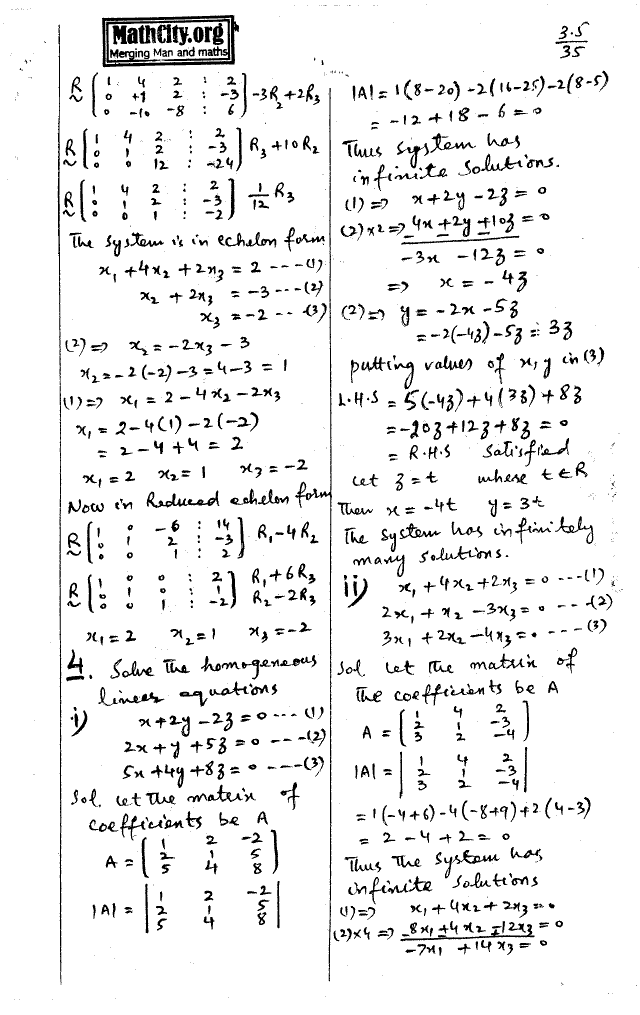 MathCity.org
Merging Man and maths
3.5
35
R ~ [ 1 4 2 : 2
0 +1 2 : -3
0 -10 -8 : 6 ] -3R2+2R3
R ~ [ 1 4 2 : 2
0 1 2 : -3
0 0 12 : -24 ] R3+10R2
R ~ [ 1 4 2 : 2
0 1 2 : -3
0 0 1 : -2 ] 1/12 R3
The system is in echelon form
x1 + 4x2 + 2x3 = 2 ---(1)
x2 + 2x3 = -3 ---(2)
x3 = -2 ---(3)
(2)=> x2 = -2x3 - 3
x2 = -2(-2) -3 = 4-3 = 1
(1)=> x1 = 2 - 4x2 - 2x3
x1 = 2-4(1)-2(-2)
= 2-4+4 = 2
x1 = 2 x2 = 1 x3 = -2
Now in Reduced echelon form
R ~ [ 1 0 -6 : 14
0 1 2 : -3
0 0 1 : 2 ] R1-4R2
R ~ [ 1 0 0 : 2
0 1 0 : 1
0 0 1 : -2 ] R1+6R3
R2-2R3
x1 = 2 x2 = 1 x3 = -2
4. Solve the homogeneous
linear equations
i) x+2y-2z = 0 ---(1)
2x+y+5z = 0 ---(2)
5x+4y+8z = 0 ---(3)
Sol. Let the matrix of
coefficients be A
A = [ 1 2 -2
2 1 5
5 4 8 ]
|A| = | 1 2 -2
2 1 5
5 4 8 |
|A| = 1(8-20) -2(16-25) -2(8-5)
= -12+18-6 = 0
Thus system has
infinite solutions.
(1)=> x+2y-2z = 0
(2)x2=> 4x+2y+10z = 0
-3x -12z = 0
=> x = -4z
(2)=> y = -2x-5z
= -2(-4z)-5z = 3z
putting values of x, y in (3)
L.H.S = 5(-4z)+4(3z)+8z
= -20z+12z+8z = 0
= R.H.S Satisfied
Let z = t where t∈R
Then x = -4t y = 3t
The system has infinitely
many solutions.
ii) x1+4x2+2x3 = 0 ---(1)
2x1+x2-3x3 = 0 ---(2)
3x1+2x2-4x3 = 0 ---(3)
Sol Let the matrix of
the coefficients be A
A = [ 1 4 2
2 1 -3
3 2 -4 ]
|A| = | 1 4 2
2 1 -3
3 2 -4 |
= 1(-4+6)-4(-8+9)+2(4-3)
= 2-4+2 = 0
Thus the system has
infinite solutions
(1)=> x1+4x2+2x3 = 0
(2)x4 => 8x1+4x2-12x3 = 0
-7x1 +14x3 = 0